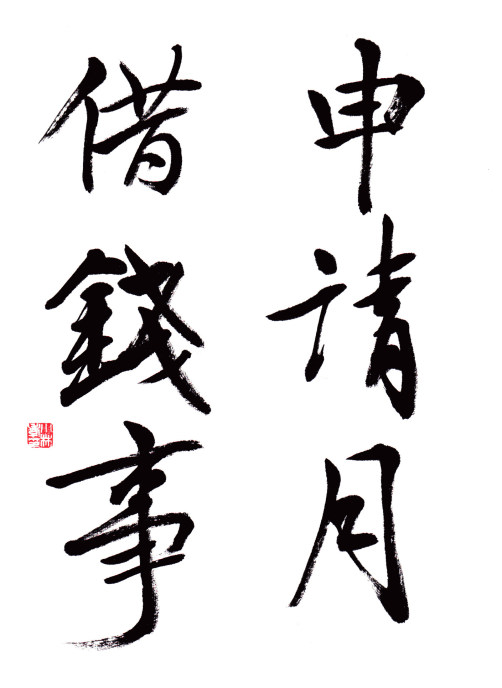 申請月
借錢事